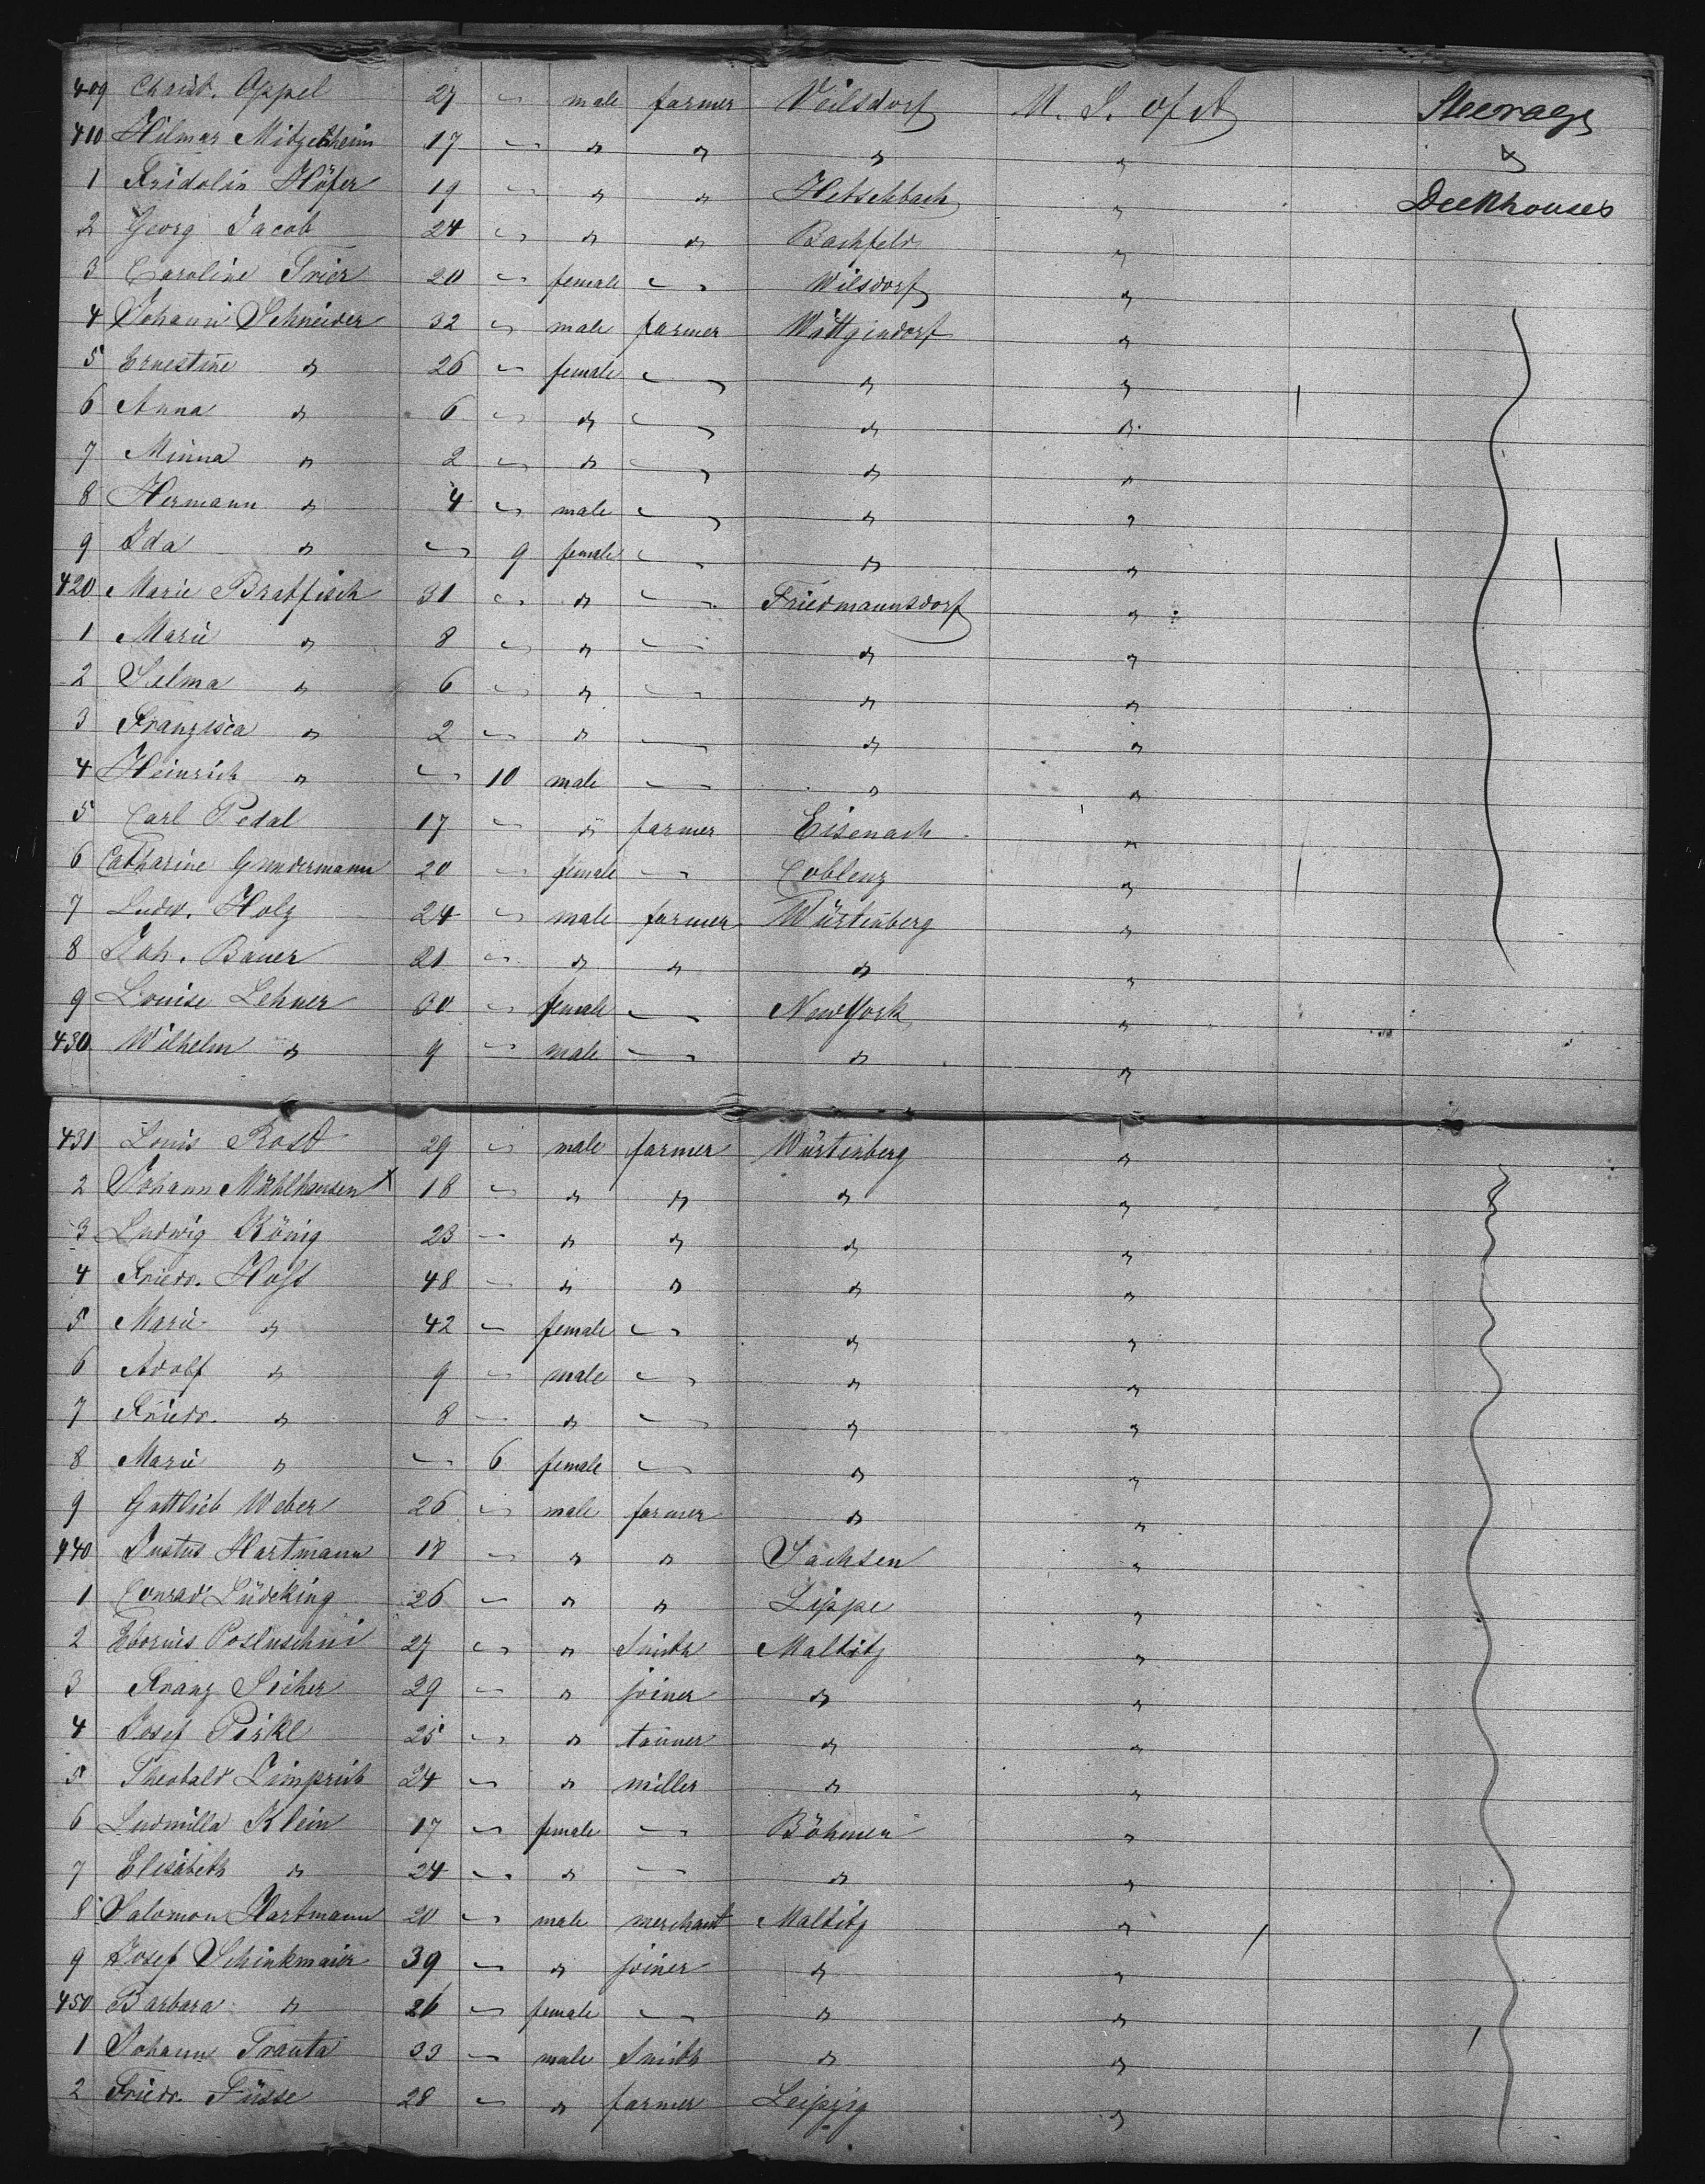 409 Christ. Appel 27 " male farmer Veilsdorf U. S. of A Steerage
410 Hilmar Mitzelheim 17 " " " " " &
1 Fridolin Höfer 19 " " " Hetschbach " Deckhouses
2 Georg Jacob 24 " " " Bachfeld "
3 Caroline Trier 20 " female " Wilsdorf "
4 Johann Schneider 32 " male farmer Wittgendorf "
5 Ernestine " 26 " female " " "
6 Anna " 6 " " " " "
7 Minna " 2 " " " " "
8 Hermann " 4 " male " " "
9 Ida " " 9 female " " "
420 Marie Bratfisch 31 " " " Friedmannsdorf "
1 Marie " 8 " " " " "
2 Selma " 6 " " " " "
3 Franzisca " 2 " " " " "
4 Heinrich " " 10 male " " "
5 Carl Pedal 17 " " farmer Eisenach "
6 Catharine Gundermann 20 " female " Coblenz "
7 Ludw. Holz 24 " male farmer Würtenberg "
8 Joh. Bauer 21 " " " " "
9 Louise Lehner 30 " female " NewYork "
430 Wilhelm " 9 " male " " "
431 Louis Rost 29 " male farmer Würtenberg "
2 Johann Mühlhausen X 18 " " " " "
3 Ludwig König 23 " " " " "
4 Friedr. Hoft 48 " " " " "
5 Marie " 42 " female " " "
6 Adolf " 9 " male " " "
7 Friedr. " 8 " " " " "
8 Marie " " 6 female " " "
9 Gottlieb Weber 26 " male farmer " "
440 Justus Hartmann 18 " " " Sachsen "
1 Conrad Lüdeking 26 " " " Lippe "
2 Posluschni 27 " " Smith Maltitz "
3 Franz Sicher 29 " " joiner " "
4 Josef Pirkl 25 " " tanner " "
5 Theobald Limprich 24 " " miller " "
6 Ludmilla Klein 17 " female " Böhmen "
7 Elisabeth " 24 " " " " "
8 Salomon Hartmann 20 " male merchant Maltitz "
9 Josef Schinkmaier 39 " " joiner " "
450 Barbara " 26 " female " " "
1 Johann Trauta 33 " male Smith " "
2 Friedr. Füsse 28 " " farmer Leipzig "